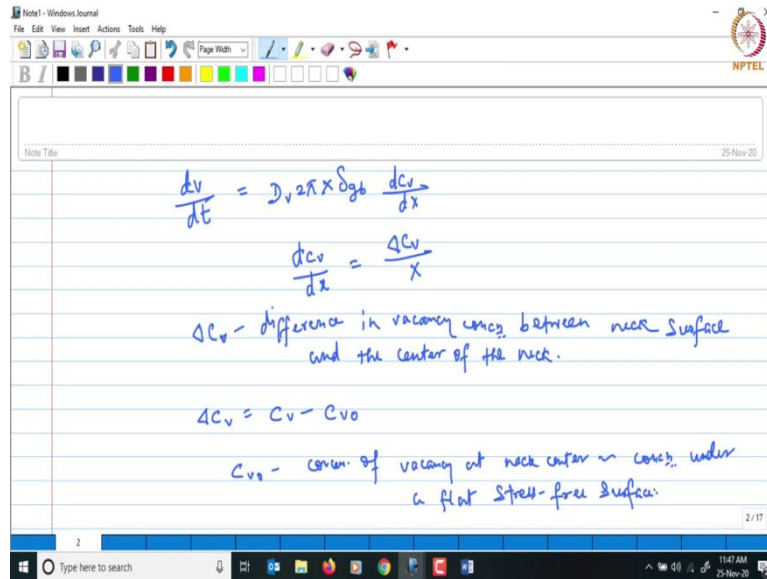 Note1 - Windows Journal
File Edit View Insert Actions Tools Help
Page Width
B I
NPTEL
Note Title
25-Nov-20
dv/dt = Dv 2πx δgb dCv/dx
dCv/dx = ΔCv/x
ΔCv - difference in vacancy concn between neck surface
and the center of the neck.
ΔCv = Cv - Cvo
Cvo - concen. of vacancy at neck center ~ concn. under
a flat stress-free surface.
2/17
2
Type here to search
11:47 AM
25-Nov-20